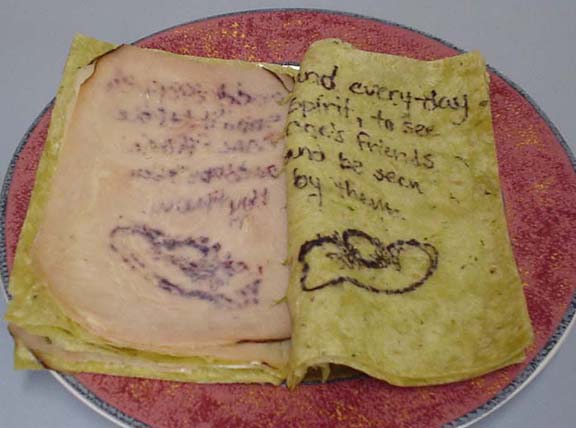 and every-day
spirit, to see
one's friends
and be seen
by them.